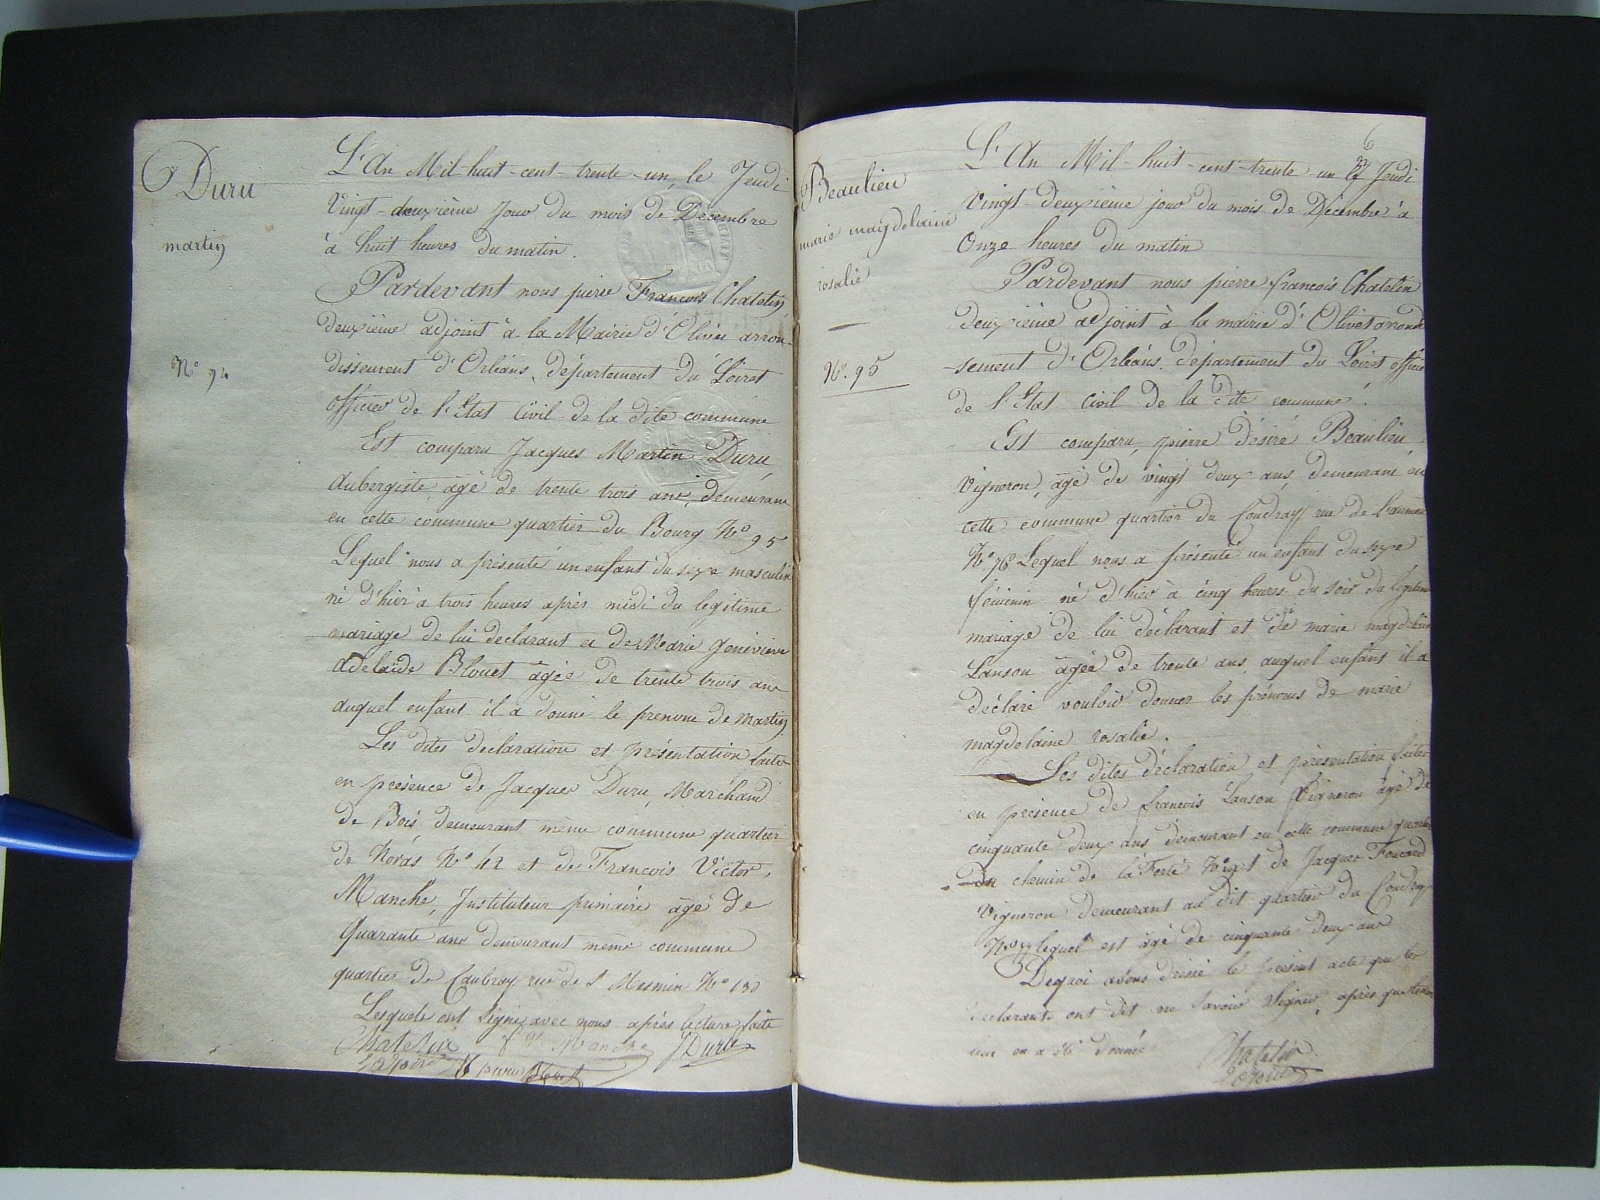 Duru
martin
N° 94
L'An Mil-huit-cent-trente-un, le Jeudi
Vingt-deuxième Jour du mois de Decembre
à huit heures du matin.
Pardevant nous pierre François Chatelin
deuxième adjoint à la Mairie d'Olivet arron-
dissement d'Orléans, département du Loiret
officier de l'Etat Civil de la dite commune
Est comparu Jacques Martin Duru
Aubergiste, âgé de trente trois ans, demeurant
en cette commune quartier du Bourg N° 95
Lequel nous a présenté un enfant du sexe masculin
né d'hier à trois heures après midi du legitime
mariage de lui declarant et de Marie géneviève
adelaïde Blouet âgée de trente trois ans
auquel enfant il a donné le prenome de Martin
Les dites declaration et présentation faites
en présence de Jacques Duru, Marchand
de Bois, demeurant même commune quartier
de Noras N° 42 et de François Victor,
Manche, Instituteur primaire âgé de
Quarante ans demeurant même commune
quartier de Caubray rue de St Mesmin N° 130
Lesquels ont signé avec nous après lecture faite
Chatelin Manche J Duru
Beaulieu
marie magdelaine
rosalie
N°. 95
6
L'An Mil-huit-cent-trente-un le Jeudi
Vingt-deuxième jour du mois de Décembre à
Onze heures du matin
Pardevant nous pierre françois Chatelin
deuxième adjoint à la mairie d'Olivet arrondi
sement d'Orléans, département du Loiret officier
de l'Etat Civil de la dite commune.
Est comparu, pierre désiré Beaulieu
Vigneron, âgé de vingt deux ans, demeurant en
cette commune quartier du Coudray rue de
N° 78 Lequel nous a présenté un enfant du sexe
féminin né d'hier à cinq heures du soir du legitime
mariage de lui déclarant et de marie magdelaine
Lanson âgée de trente ans, auquel enfant il a
déclaré vouloir donner les prénoms de marie
magdelaine rosalie.
Les dites déclaration et présentation faites
en présence de françois Lanson Vigneron âgé de
cinquante deux ans demeurant en cette commune quartier
du chemin de la Ferté et de Jacques Foucard
Vigneron demeurant au dit quartier du Coudray
lequel est âgé de cinquante deux ans
Dequoi avons dréssé le présent acte que les
declarants ont dit ne savoir signer, après que lecture
leur en a été donnée
Chatelin